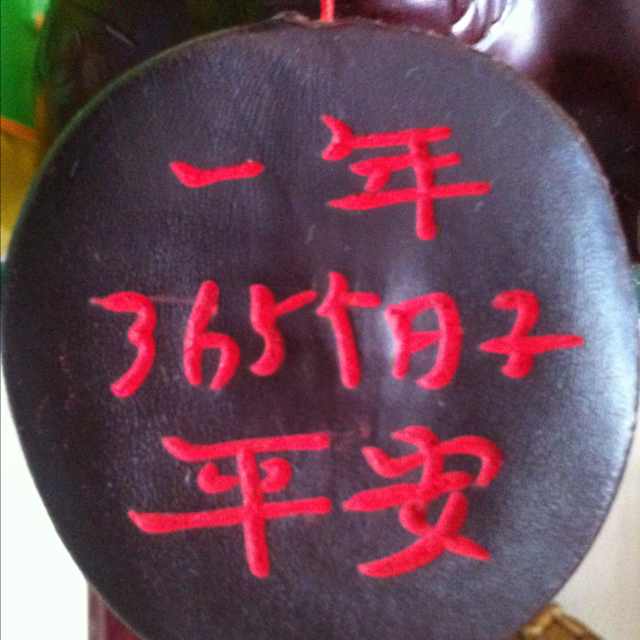 一年
365个日子
平安